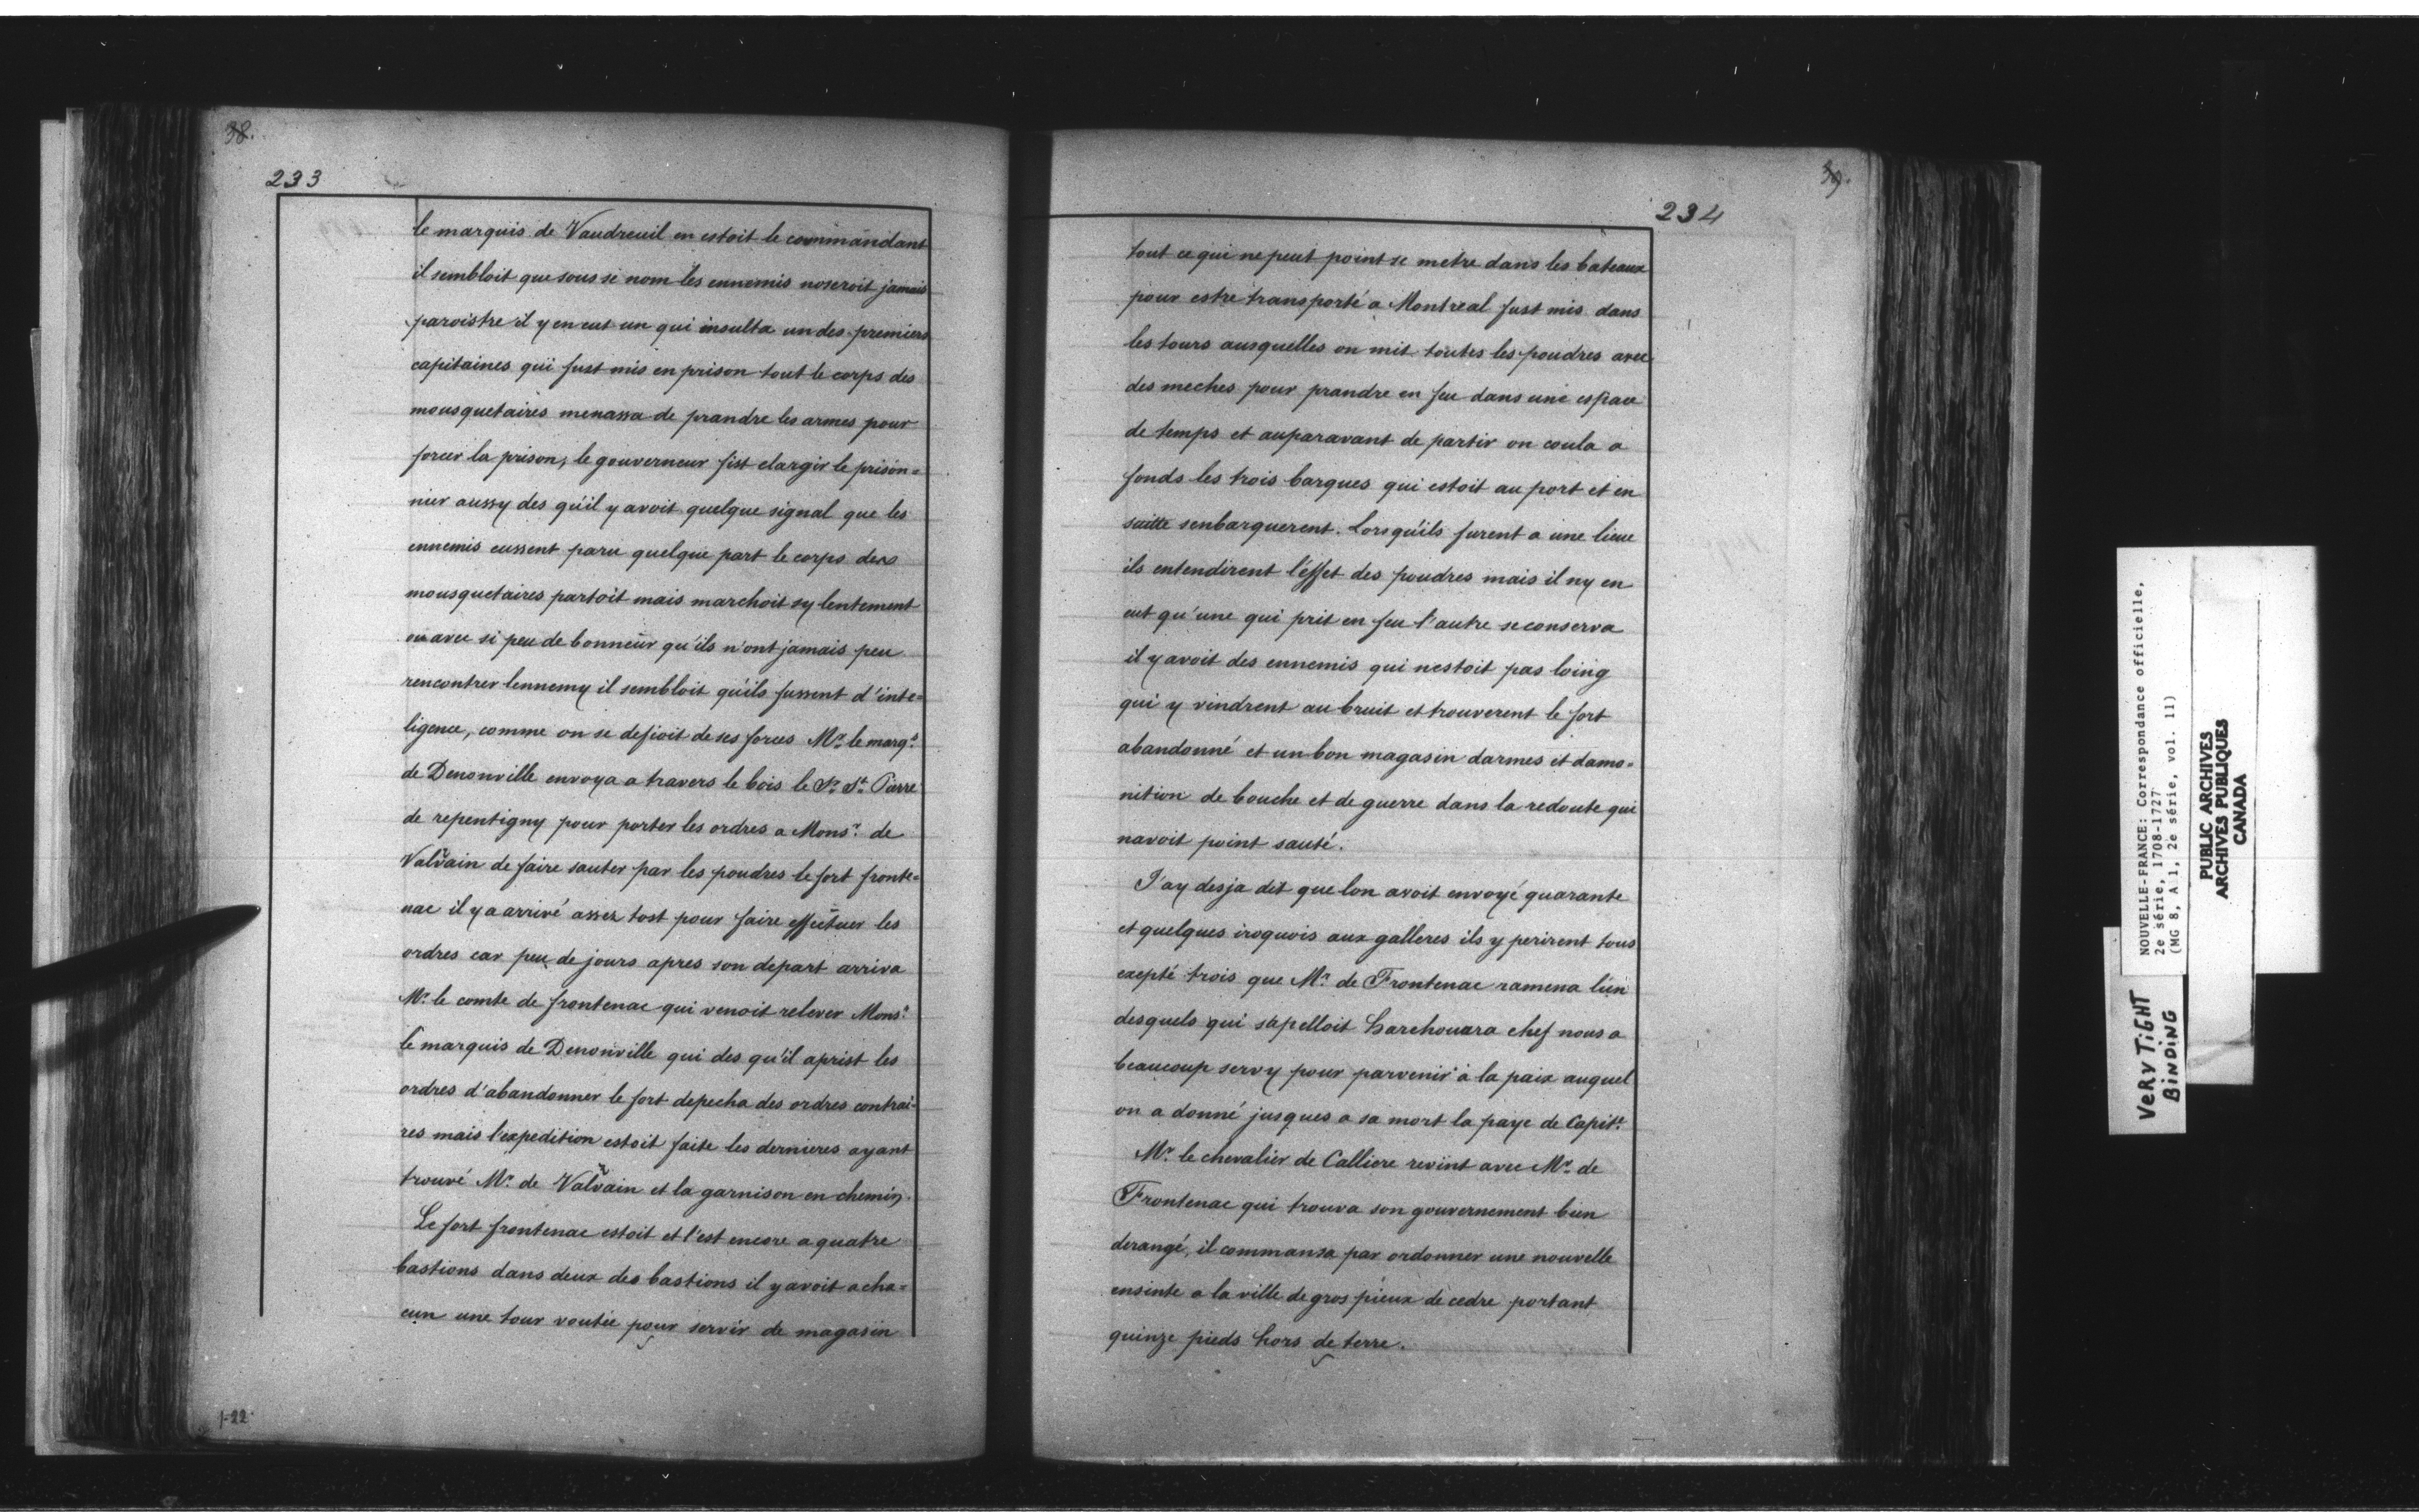 38.
233
le marquis de Vaudreuil en estoit le commandant
il sembloit que sous si nom les ennemis noseroit jamais
paroistre il y en eut un qui insulta un des premiers
capitaines qui fust mis en prison tout le corps des
mousquetaires menassa de prandre les armes pour
forcer la prison, le gouverneur fist elargir le prison=
nier aussy des qu'il y avoit quelque signal que les
ennemis eussent paru quelque part le corps des
mousquetaires partoit mais marchoit sy lentement
ou avec si peu de bonneur qu'ils n'ont jamais peu
rencontrer lennemy il sembloit qu'ils fussent d'inte=
ligence, comme on se defioit de ses forces Mr. le marq.s
de Denonville envoya a travers le bois le Sr. St. Pierre
de repentigny pour porter les ordres a Monsr. de
Valvain de faire sauter par les poudres le fort fronte=
nac il y a arrivé assez tost pour faire effectuer les
ordres car peu de jours apres son depart arriva
Mr. le comte de frontenac qui venoit relever Monsr.
le marquis de Denonville qui des qu'il aprist les
ordres d'abandonner le fort depecha des ordres contrai=
res mais l'expedition estoit faite les dernieres ayant
trouvé Mr. de Valvain et la garnison en chemin.
Le fort frontenac estoit et l'est encore a quatre
bastions dans deux des bastions il y avoit a cha=
cun une tour voutée pour servir de magasin
1-22
39.
234
tout ce qui ne peut point se metre dans les bateaux
pour estre transporté a Montreal fust mis dans
les tours ausquelles on mit toutes les poudres avec
des meches pour prandre en feu dans une espace
de temps et auparavant de partir on coula a
fonds les trois barques qui estoit au port et en
suitte senbarquerent. Lorsqu'ils furent a une lieue
ils entendirent l'éffet des poudres mais il ny en
eut qu'une qui prit en feu l'autre se conserva
il y avoit des ennemis qui nestoit pas loing
qui y vindrent au bruit et trouverent le fort
abandonné et un bon magasin darmes et damo=
nition de bouche et de guerre dans la redoute qui
navoit point sauté.
J'ay desja dit que lon avoit envoyé quarante
et quelques iroquois aux galleres ils y perirent tous
excepté trois que Mr. de Frontenac ramena lun
desquels qui s'apelloit harehouara chef nous a
beaucoup servy pour parvenir à la paix auquel
on a donné jusques a sa mort la paye de Capit.e
Mr. le chevalier de Calliere revint avec Mr. de
Frontenac qui trouva son gouvernement bien
derangé, il commansa par ordonner une nouvelle
ensinte a la ville de gros pieux de cedre portant
quinze pieds hors de terre.
NOUVELLE-FRANCE: Correspondance officielle,
2e série, 1708-1727
(MG 8, A 1, 2e série, vol. 11)
PUBLIC ARCHIVES
ARCHIVES PUBLIQUES
CANADA
VERY TiGHT
BiNDiNG